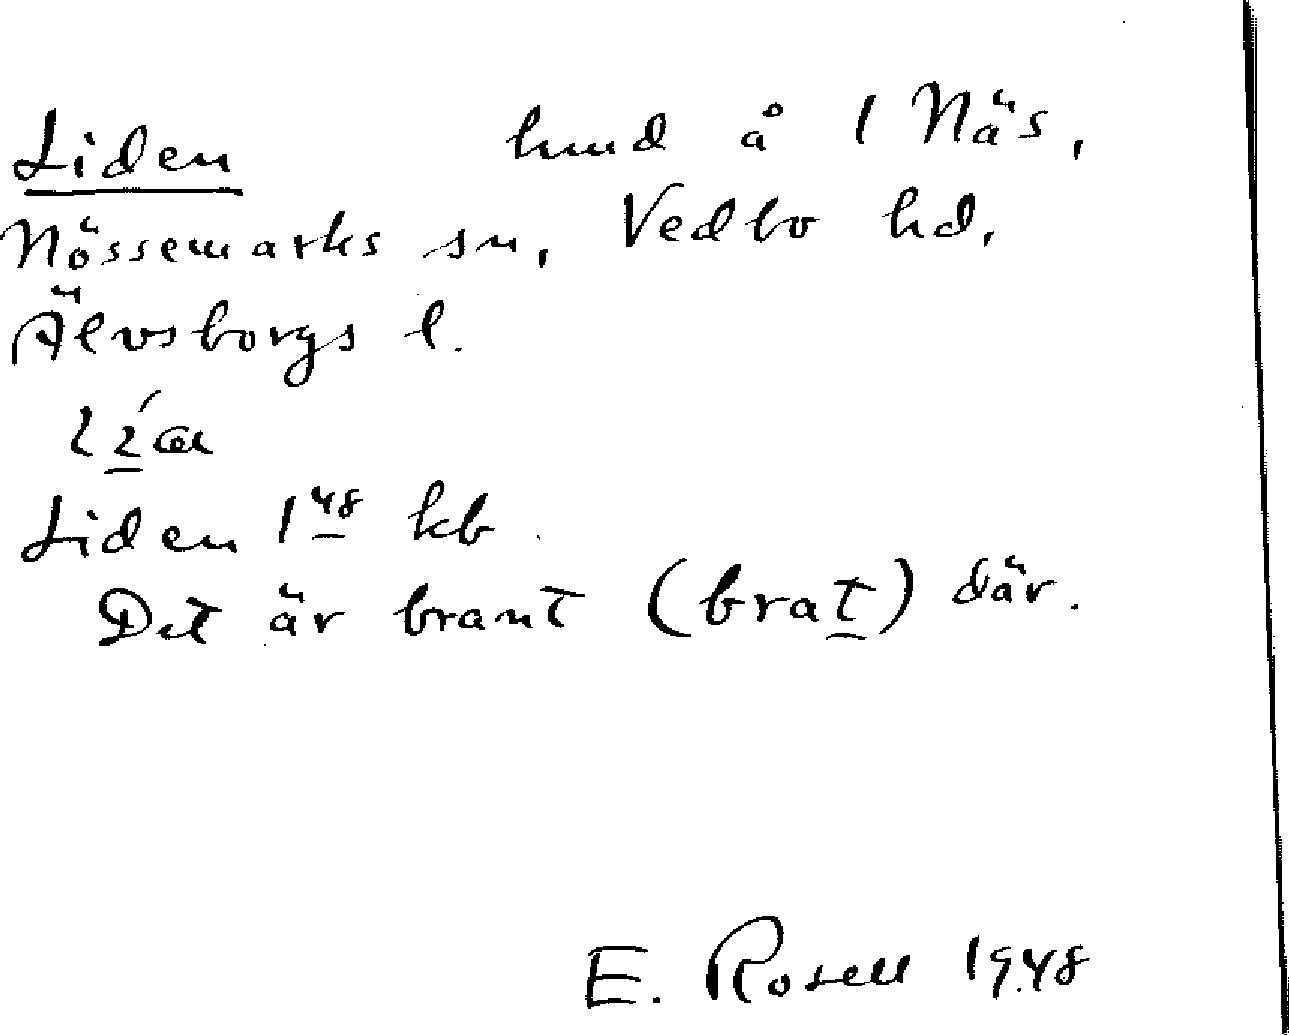 Liden hmd å 1 Näs,
Nössemarks sn, Vedbo hd,
Älvsborgs l.
Liden 1 48 kb.
Det är brant (brat) där.
E. Rosell 1948